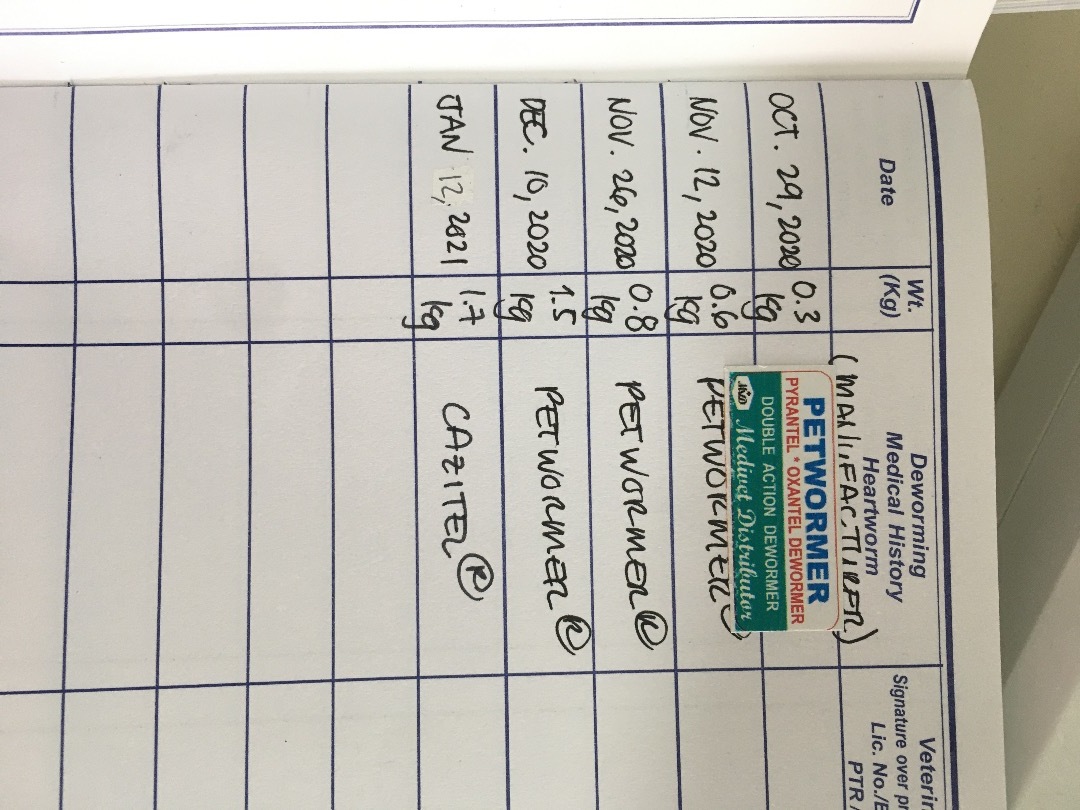 Date
Wt.
(Kg)
Deworming
Medical History
Heartworm
(MANUFACTURER)
Signature over
Lic. No./
PTR
OCT. 29, 2020
0.3
kg
PETWORMER
PYRANTEL * OXANTEL DEWORMER
DOUBLE ACTION DEWORMER
Medivet Distributor
NOV. 12, 2020
0.6
kg
PETWORMER
NOV. 26, 2020
0.8
kg
PETWORMER ®
DEC. 10, 2020
1.5
kg
PETWORMER ®
JAN 12, 2021
1.7
kg
CAZITEL ®